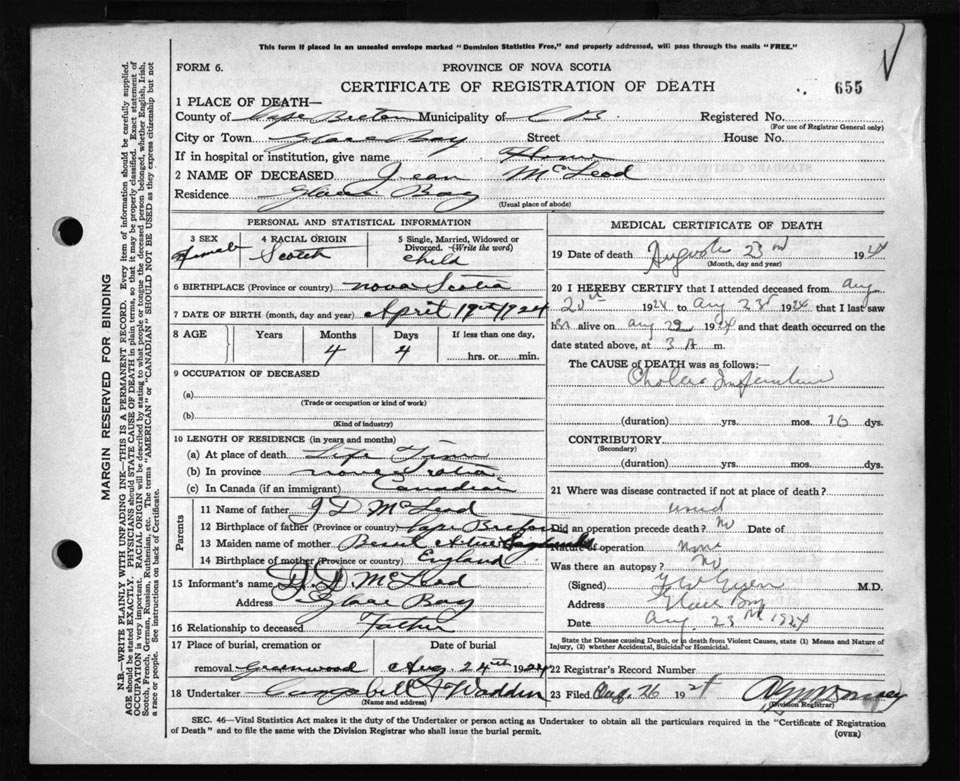 This form if placed in an unsealed envelope marked "Dominion Statistics Free," and properly addressed, will pass through the mails "FREE."
FORM 6.
PROVINCE OF NOVA SCOTIA
CERTIFICATE OF REGISTRATION OF DEATH
655
1 PLACE OF DEATH—
County of Cape Breton Municipality of C B Registered No.
(For use of Registrar General only)
City or Town Glace Bay Street House No.
If in hospital or institution, give name Home
2 NAME OF DECEASED Jean McLeod
Residence Glace Bay
(Usual place of abode)
PERSONAL AND STATISTICAL INFORMATION
3 SEX Female
4 RACIAL ORIGIN Scotch
5 Single, Married, Widowed or Divorced. (Write the word) Child
6 BIRTHPLACE (Province or country) Nova Scotia
7 DATE OF BIRTH (month, day and year) April 19th 1924
8 AGE Years Months Days If less than one day,
4 4 hrs. or min.
9 OCCUPATION OF DECEASED
(a)
(Trade or occupation or kind of work)
(b)
(Kind of industry)
10 LENGTH OF RESIDENCE (in years and months)
(a) At place of death Life Time
(b) In province Nova Scotia
(c) In Canada (if an immigrant) Canadian
Parents
11 Name of father McLeod
12 Birthplace of father (Province or country) Cape Breton
13 Maiden name of mother
14 Birthplace of mother (Province or country) England
15 Informant's name McLeod
Address Glace Bay
16 Relationship to deceased Father
17 Place of burial, cremation or Date of burial
removal Greenwood Aug 24th 1924
18 Undertaker Campbell & Wadden
(Name and address)
MEDICAL CERTIFICATE OF DEATH
19 Date of death August 23rd 1924
(Month, day and year)
20 I HEREBY CERTIFY that I attended deceased from Aug
20th 1924 to Aug 23rd 1924 that I last saw
her alive on Aug 22 1924 and that death occurred on
date stated above, at 3 A m.
The CAUSE of DEATH was as follows:
Cholera Infantum
(duration) yrs. mos. 16 dys.
CONTRIBUTORY
(Secondary)
(duration) yrs. mos. dys.
21 Where was disease contracted if not at place of death?
Did an operation precede death? No Date of
Nature of operation none
Was there an autopsy? No
(Signed) M.D.
Address Glace Bay
Date Aug. 23rd 1924
State the Disease causing Death, or in death from Violent Causes, state (1) Means and Nature of Injury, (2) whether Accidental, Suicidal or Homicidal.
22 Registrar's Record Number
23 Filed Aug 26 1924
(Division Registrar)
SEC. 46—Vital Statistics Act makes it the duty of the Undertaker or person acting as Undertaker to obtain all the particulars required in the "Certificate of Registration
of Death" and to file the same with the Division Registrar who shall issue the burial permit.
(OVER)
MARGIN RESERVED FOR BINDING
N.B.—WRITE PLAINLY WITH UNFADING INK—THIS IS A PERMANENT RECORD. Every item of information should be carefully supplied.
AGE should be stated EXACTLY. PHYSICIANS should STATE CAUSE OF DEATH in plain terms, so that it may be properly classified. Exact statement of
OCCUPATION is very important. RACIAL ORIGIN will be described by stating to what people or tongue the deceased person belonged, whether English, Irish,
Scotch, French, German, Russian, Ruthenian, etc. The terms "AMERICAN" or "CANADIAN" SHOULD NOT BE USED as they express citizenship but not
a race or people. See instructions on back of Certificate.